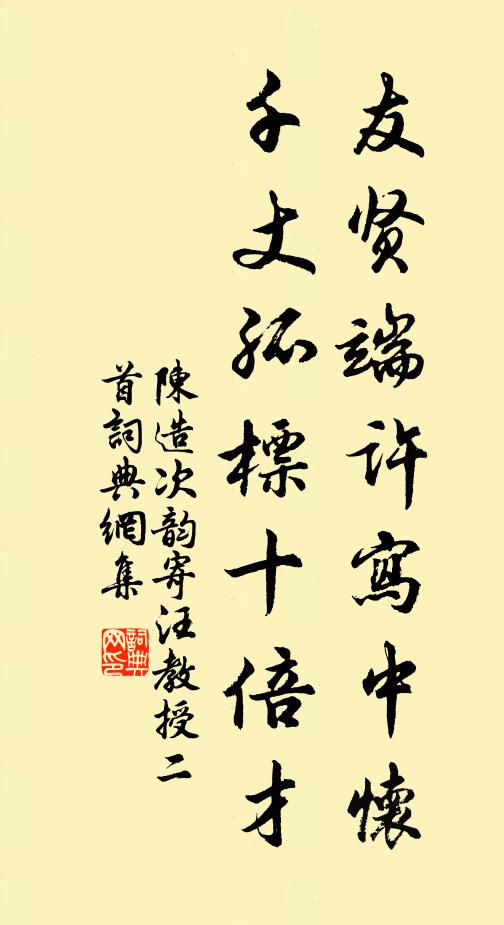 友贤端许寫中懷
千丈孤標十倍才
陳造次韵寄汪教授二
首詞典網集
詞典網印